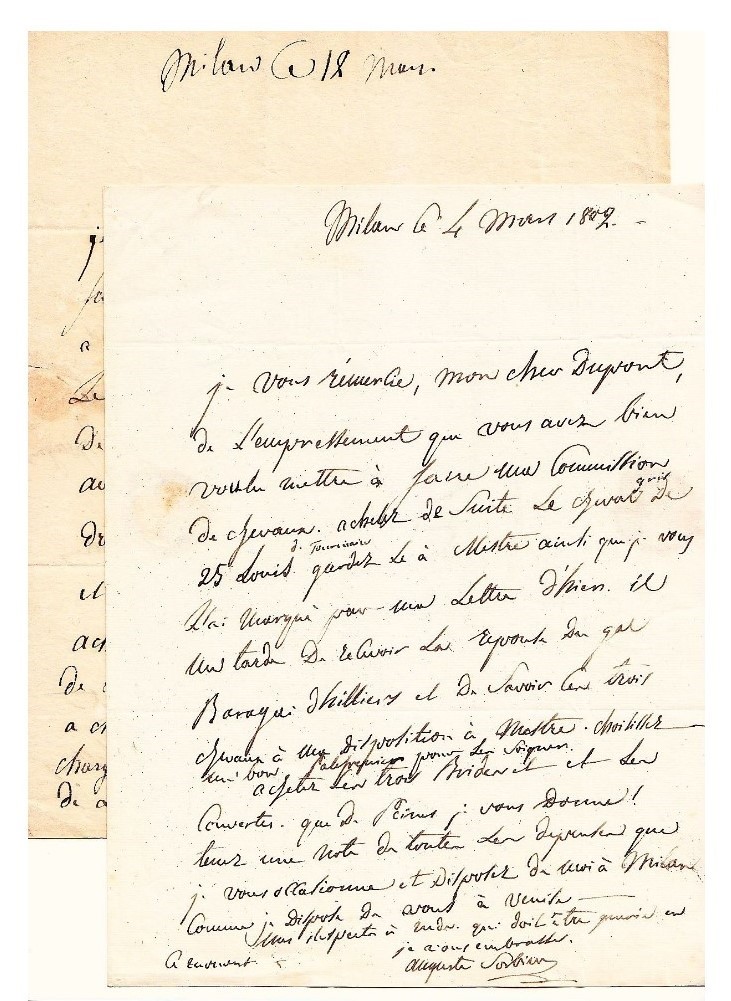 Milan Ce 18 Mars.
j
fa
a
Le
De
au
de
et
ach
de
a ch
charg
de a
Milan Ce 4 Mars 1809.
je vous rémercie, mon cher Dupont,
de L'empressement que vous avez bien
voulu mettre à faire ma Commission
gris
de chevaux. achetez de Suite Le cheval De
d. Tournaire
25 Louis gardez Le à Mestre ainsi que je vous
L'ai marqué par ma Lettre d'hier. il
me tarde De recevoir La reponse Du gal
Baraguei d'hilliers et De Savoir Les trois
chevaux à ma disposition à Mestre. choisissez
un bon Palefrenier pour Les Soigner.
achetez Les trois Brides et et Les
Couvertes. que De Peines je vous Donne!
tenez une Note de toutes Les depenses que
je vous occasionne et Disposez de moi à Milan
Comme je Dispose De vous à Venise
qui doit être
je vous embrasse.
auguste Sorbier